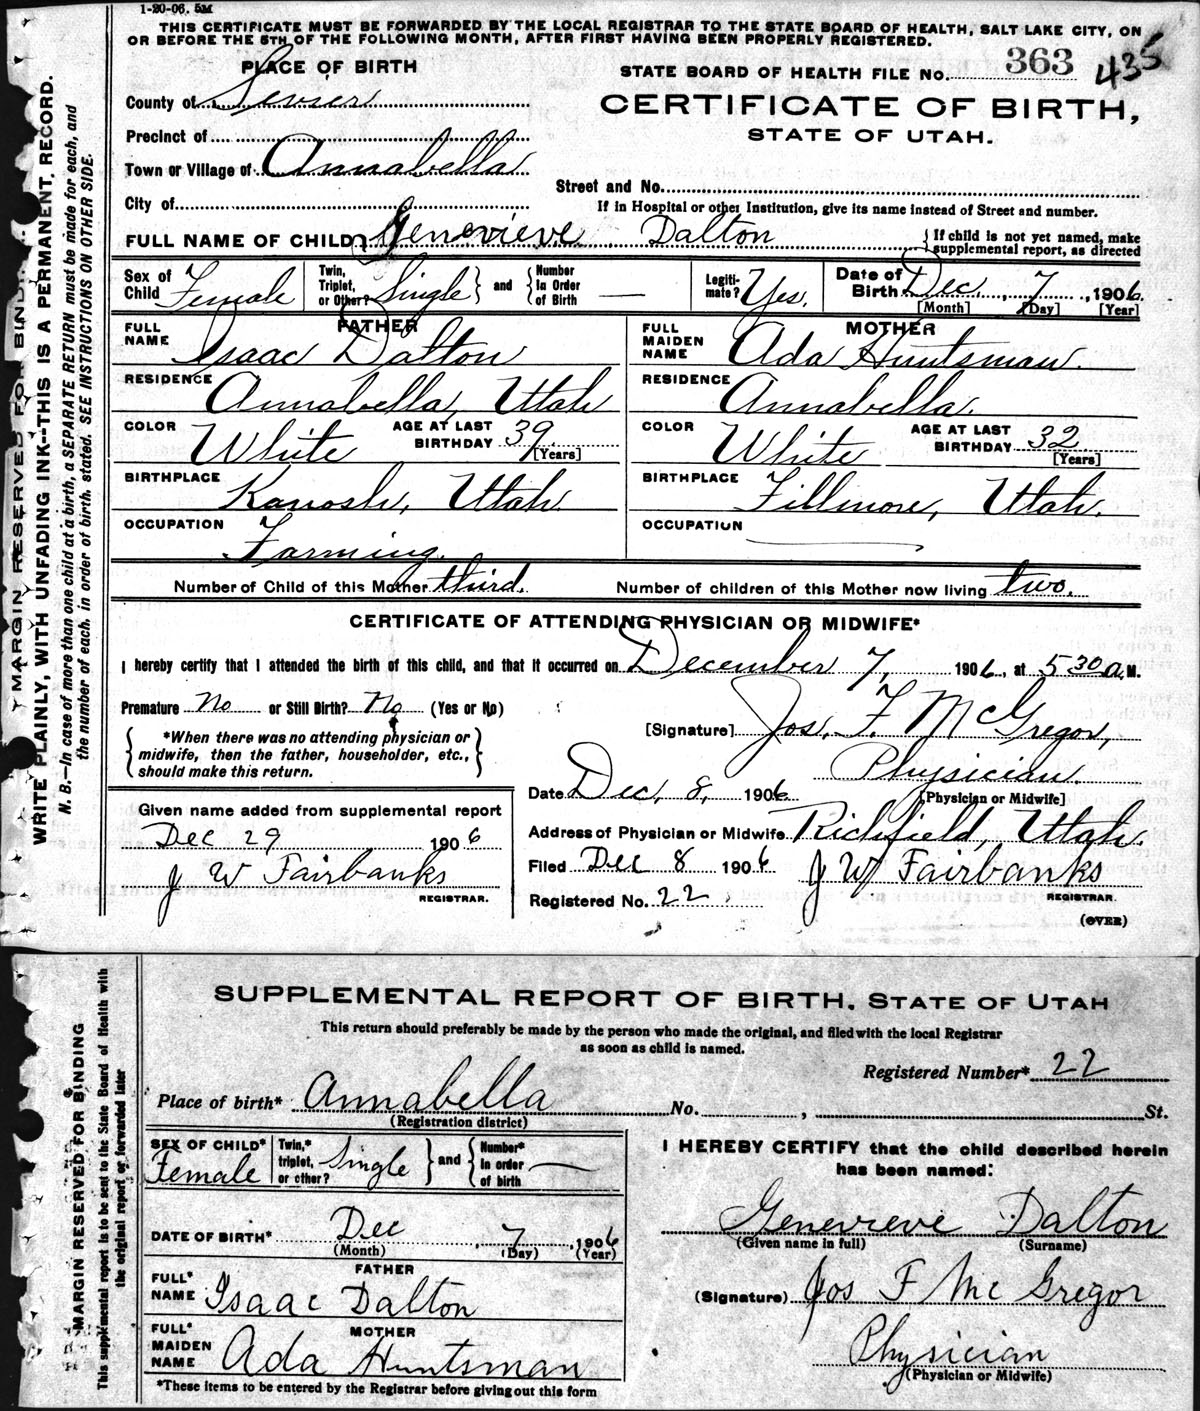 1-20-06. 5M
THIS CERTIFICATE MUST BE FORWARDED BY THE LOCAL REGISTRAR TO THE STATE BOARD OF HEALTH, SALT LAKE CITY, ON
OR BEFORE THE 5TH OF THE FOLLOWING MONTH, AFTER FIRST HAVING BEEN PROPERLY REGISTERED.
PLACE OF BIRTH
STATE BOARD OF HEALTH FILE NO. 363 435
County of Sevier
CERTIFICATE OF BIRTH,
STATE OF UTAH.
Precinct of
Town or Village of Annabella
Street and No.
City of
If in Hospital or other Institution, give its name instead of Street and number.
FULL NAME OF CHILD Genevieve Dalton {If child is not yet named, make supplemental report, as directed
Sex of Child Female Twin, Triplet, or Other? Single } and { Number In Order of Birth — Legiti-mate? Yes. Date of Birth Dec. 7, 1906.
[Month] [Day] [Year]
FATHER
FULL NAME Isaac Dalton
RESIDENCE Annabella, Utah
COLOR White AGE AT LAST BIRTHDAY 39 [Years]
BIRTHPLACE Kanosh, Utah.
OCCUPATION Farming.
MOTHER
FULL MAIDEN NAME Ada Huntsman.
RESIDENCE Annabella.
COLOR White AGE AT LAST BIRTHDAY 32 [Years]
BIRTHPLACE Fillmore, Utah.
OCCUPATION
Number of Child of this Mother third. Number of children of this Mother now living two.
CERTIFICATE OF ATTENDING PHYSICIAN OR MIDWIFE*
I hereby certify that I attended the birth of this child, and that it occurred on December 7, 1906, at 5 30 a. M.
Premature No or Still Birth? No (Yes or No)
[Signature] Jos. F. McGregor,
Physician.
[Physician or Midwife]
{ *When there was no attending physician or
midwife, then the father, householder, etc.,
should make this return. }
Date Dec. 8, 1906
Address of Physician or Midwife Richfield, Utah.
Filed Dec 8 1906 J W Fairbanks
REGISTRAR.
Registered No. 22
(OVER)
Given name added from supplemental report
Dec 29 1906
J W Fairbanks
REGISTRAR.
MARGIN RESERVED FOR BINDI
WRITE PLAINLY, WITH UNFADING INK--THIS IS A PERMANENT RECORD.
N. B.—In case of more than one child at a birth, a SEPARATE RETURN must be made for each, and
the number of each, in order of birth, stated. SEE INSTRUCTIONS ON OTHER SIDE.
SUPPLEMENTAL REPORT OF BIRTH, STATE OF UTAH
This return should preferably be made by the person who made the original, and filed with the local Registrar
as soon as child is named.
Registered Number* 22
Place of birth* Annabella No. , St.
(Registration district)
SEX OF CHILD* Female Twin,* triplet, or other? Single } and { Number* in order of birth —
DATE OF BIRTH* Dec 7, 1906
(Month) (Day) (Year)
FATHER
FULL* NAME Isaac Dalton
MOTHER
FULL* MAIDEN NAME Ada Huntsman
*These items to be entered by the Registrar before giving out this form
I HEREBY CERTIFY that the child described herein
has been named:
Genevieve Dalton
(Given name in full) (Surname)
(Signature) Jos F McGregor
Physician
(Physician or Midwife)
MARGIN RESERVED FOR BINDING
This supplemental report is to be sent to the State Board of Health with
the original report or forwarded later